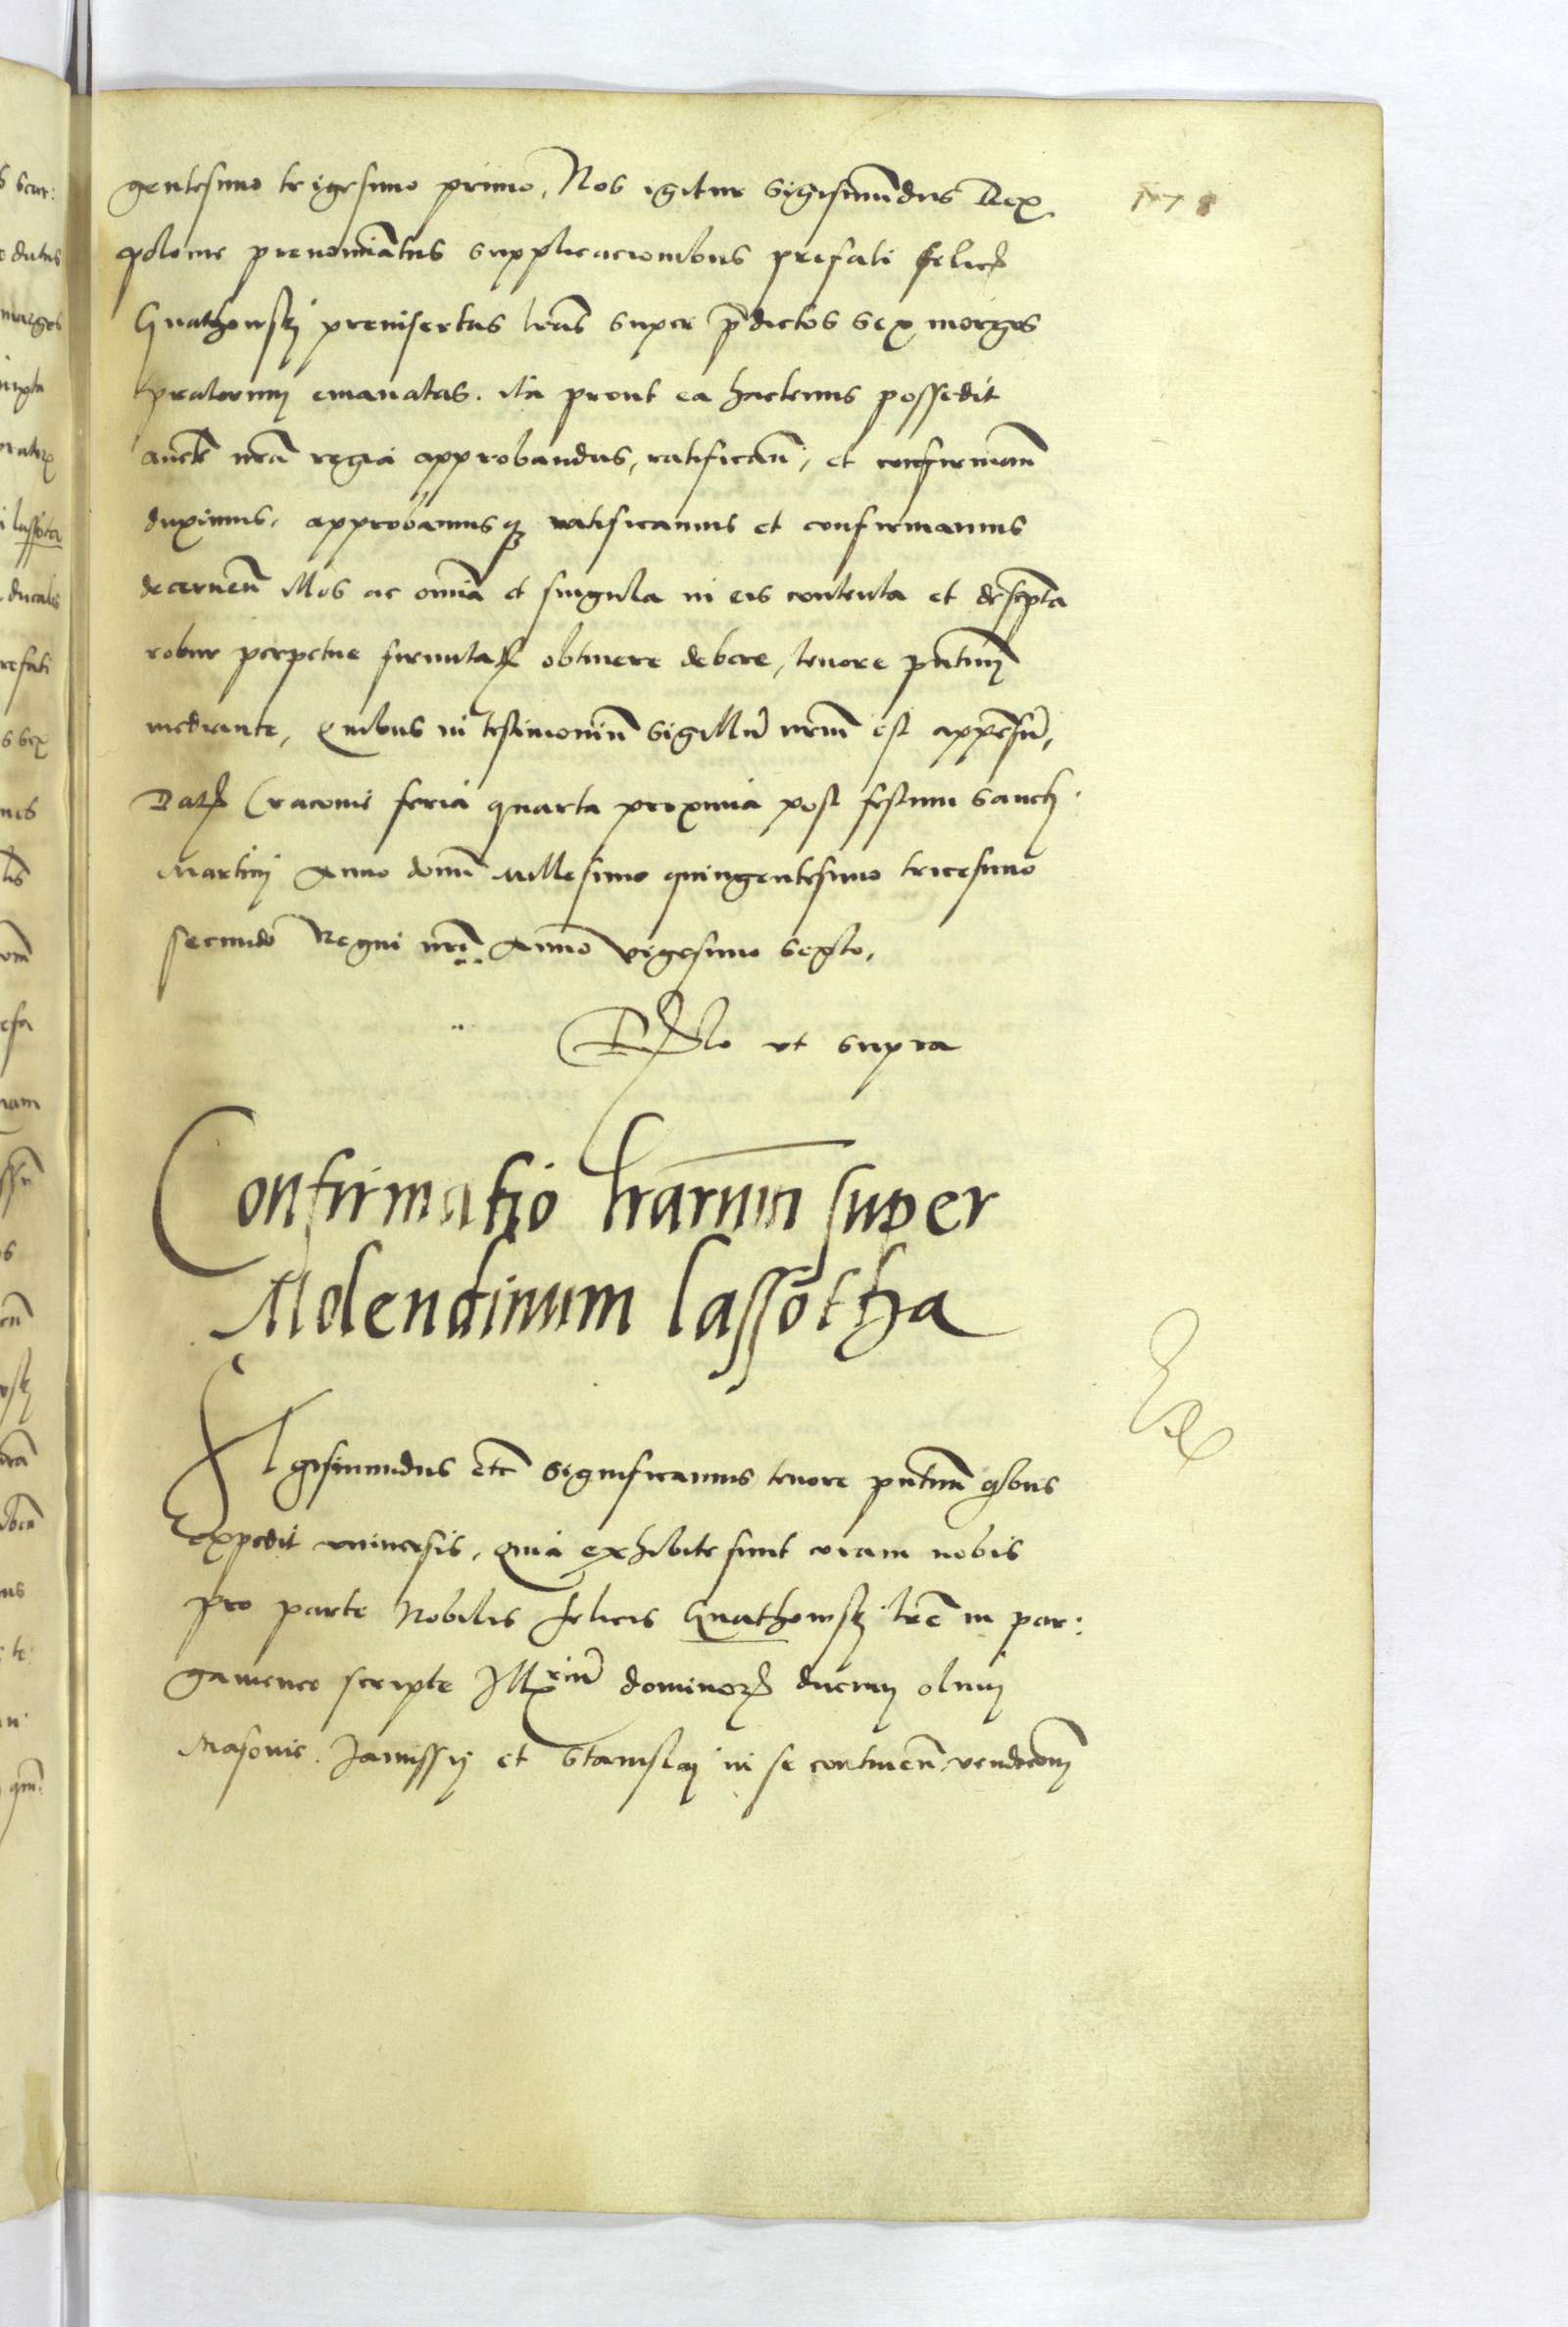 gentesimo trigesimo primo, Nos igitur Sigismũdus Rex
polonie prenomiãtus supplicacionibus prefati felicis
Gnathowskj preinsertas lrãs super p̃dictos sex morgos
pratorum emanatas. ita prout ea hactenus possedit
auctẽ nrã regia approbandas, ratificañ, et confirmañ
duximus, approbamusqꝫ ratificamus et confirmamus
decerneñ illas ac omĩa et singula in eis contenta et descp̃ta
robur perpetue firmitatis obtinere debere, tenore pñtium
mediante, Quibus in testimoniũ Sigillũ nrm̃ est appẽsũ,
Datꝭ Cracouie feria quarta proxima post festum Sancti
Martini Anno domĩ Millesimo quingentesimo tricesimo
secundo Regni nrĩ Anno vigesimo sexto,
Rlo vt supra
Confirmatio lrãrum super
Molendinum Lassotha
Sigismundus etc̃ Significamus tenore pñtium qbus
expedit vniuersis, Quia exhibite sunt coram nobis
pro parte Nobilis felicis Gnathowskj lrẽ in par:
gameneo scripte Illrium̃ dominorꝭ ducum olim
Masouie. Janussij et Stanislaj in se contineñ vendicõm